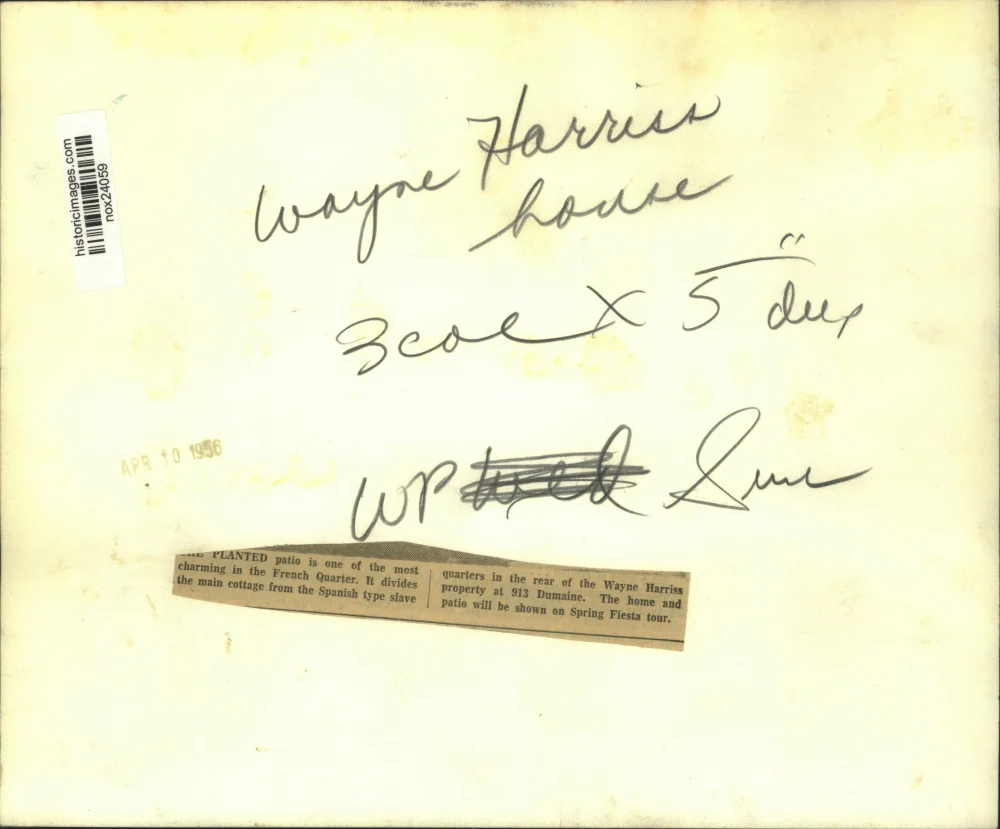 historicimages.com
nox24059
Wayne Harriss
house
3 col x 5"
APR 10 1956
WP Wed Sun
PLANTED patio is one of the most
charming in the French Quarter. It divides
the main cottage from the Spanish type slave
quarters in the rear of the Wayne Harriss
property at 913 Dumaine. The home and
patio will be shown on Spring Fiesta tour.